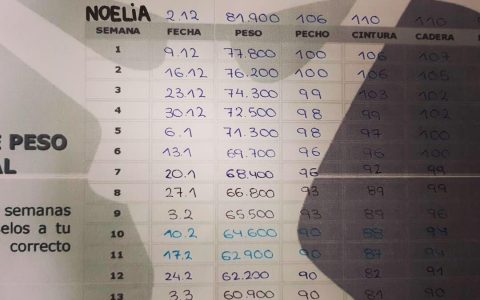 NOELIA 2.12 81.900 106 110 110
SEMANA FECHA PESO PECHO CINTURA CADERA
1 9.12 77.800 100 106 107
2 16.12 76.200 100 106 105
3 23.12 74.300 99 103 102
4 30.12 72.500 98 99 102
5 6.1 71.300 98 97 100
6 13.1 69.700 96 96 100
7 20.1 68.400 96 92 99
8 27.1 66.800 93 89 99
9 3.2 65500 93 89 96
10 10.2 64.600 90 88 94
11 17.2 62.900 90 87 94
12 24.2 62.200 90 82 91
13 3.3 60.900 90 81 90
E PESO
AL
semanas
selos a tu
correcto